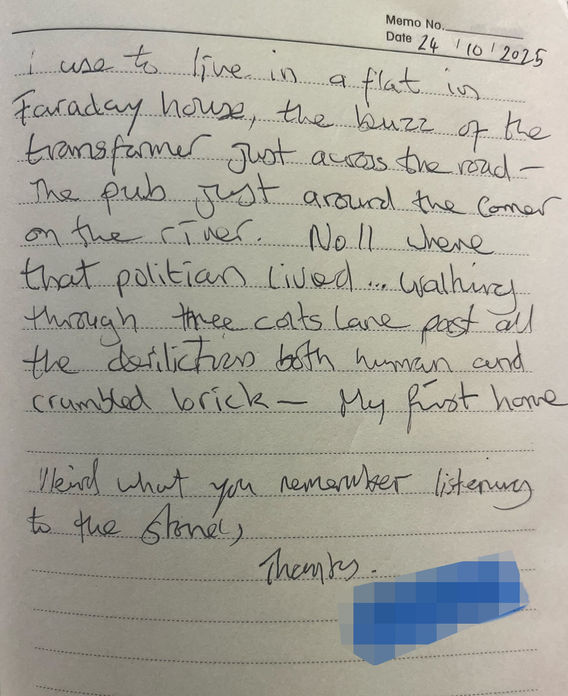 Memo No.
Date 24 / 10 / 2025
i use to live in a flat in
Faraday house, the buzz of the
transformer just across the road -
The pub just around the corner
on the river. No 11 where
that politian lived ... walking
through three colts lane past all
the derilictian both human and
crumbled brick - My first home
Weird what you remember listening
to the stones,
Thanks.